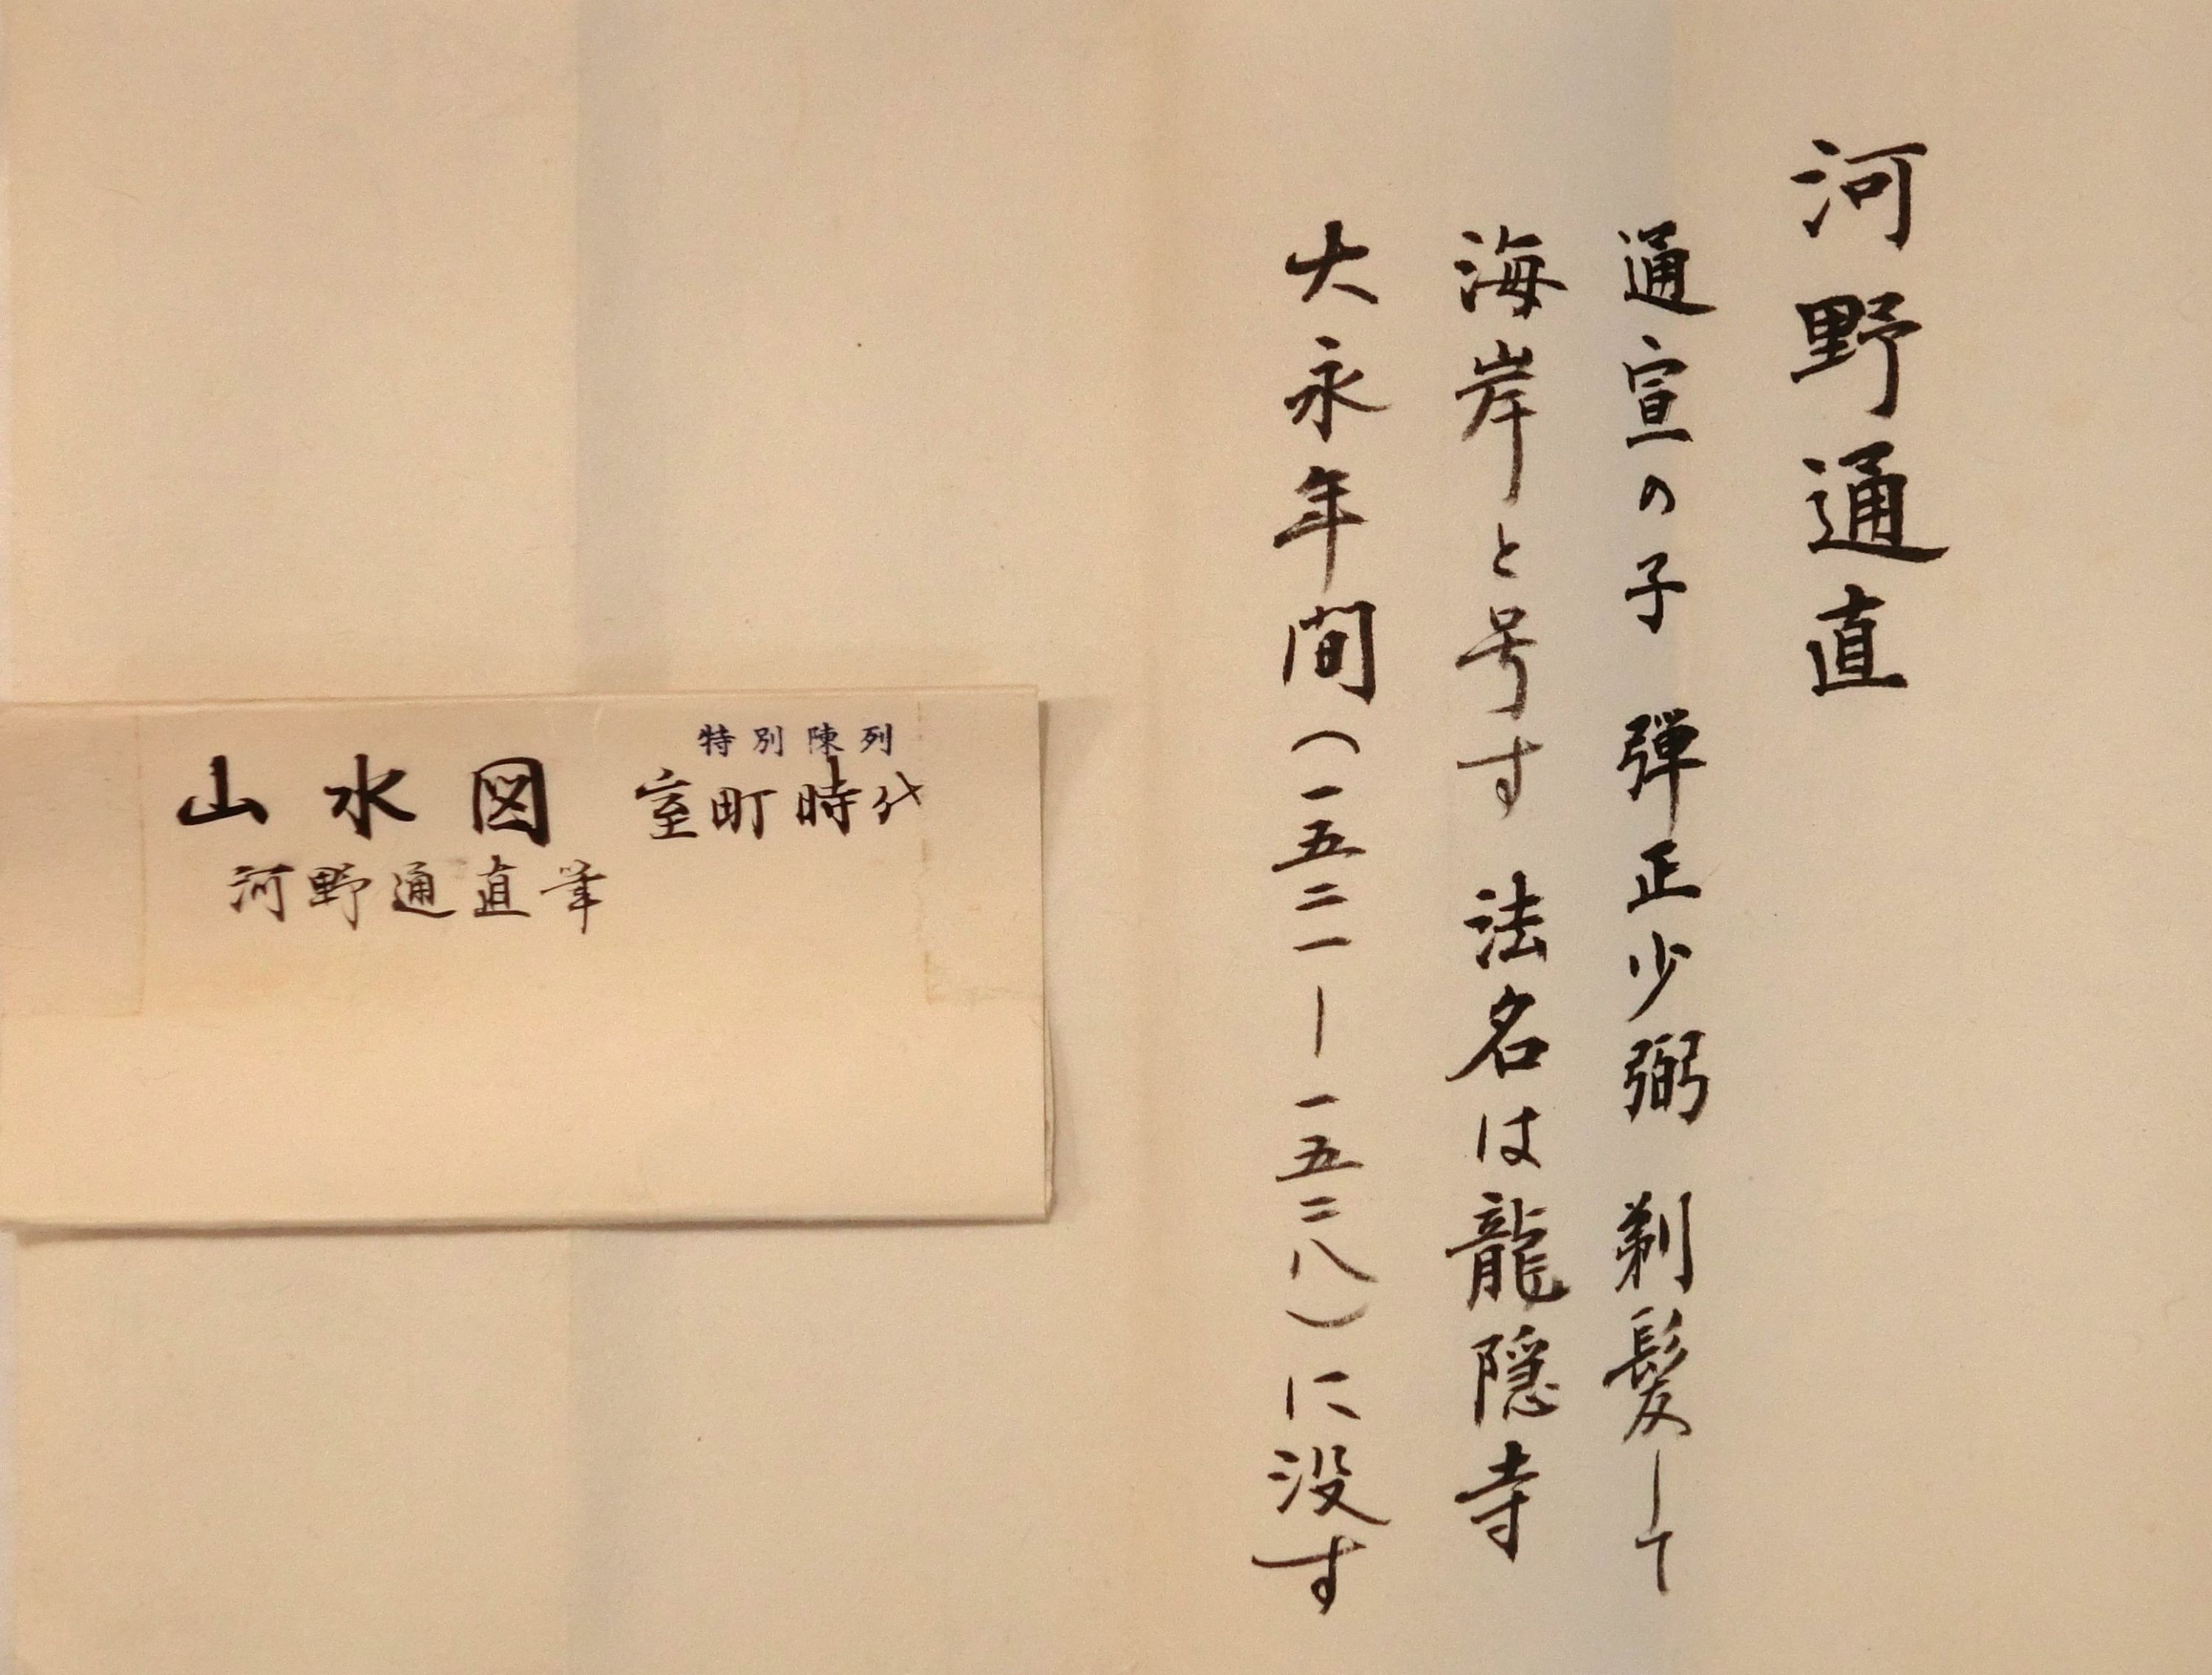 河野通直
通宣の子 弾正少弼 剃髪して
海岸と号す 法名は龍隠寺
大永年間（一五二一－一五二八）に没す
特別陳列
山水図 室町時代
河野通直筆